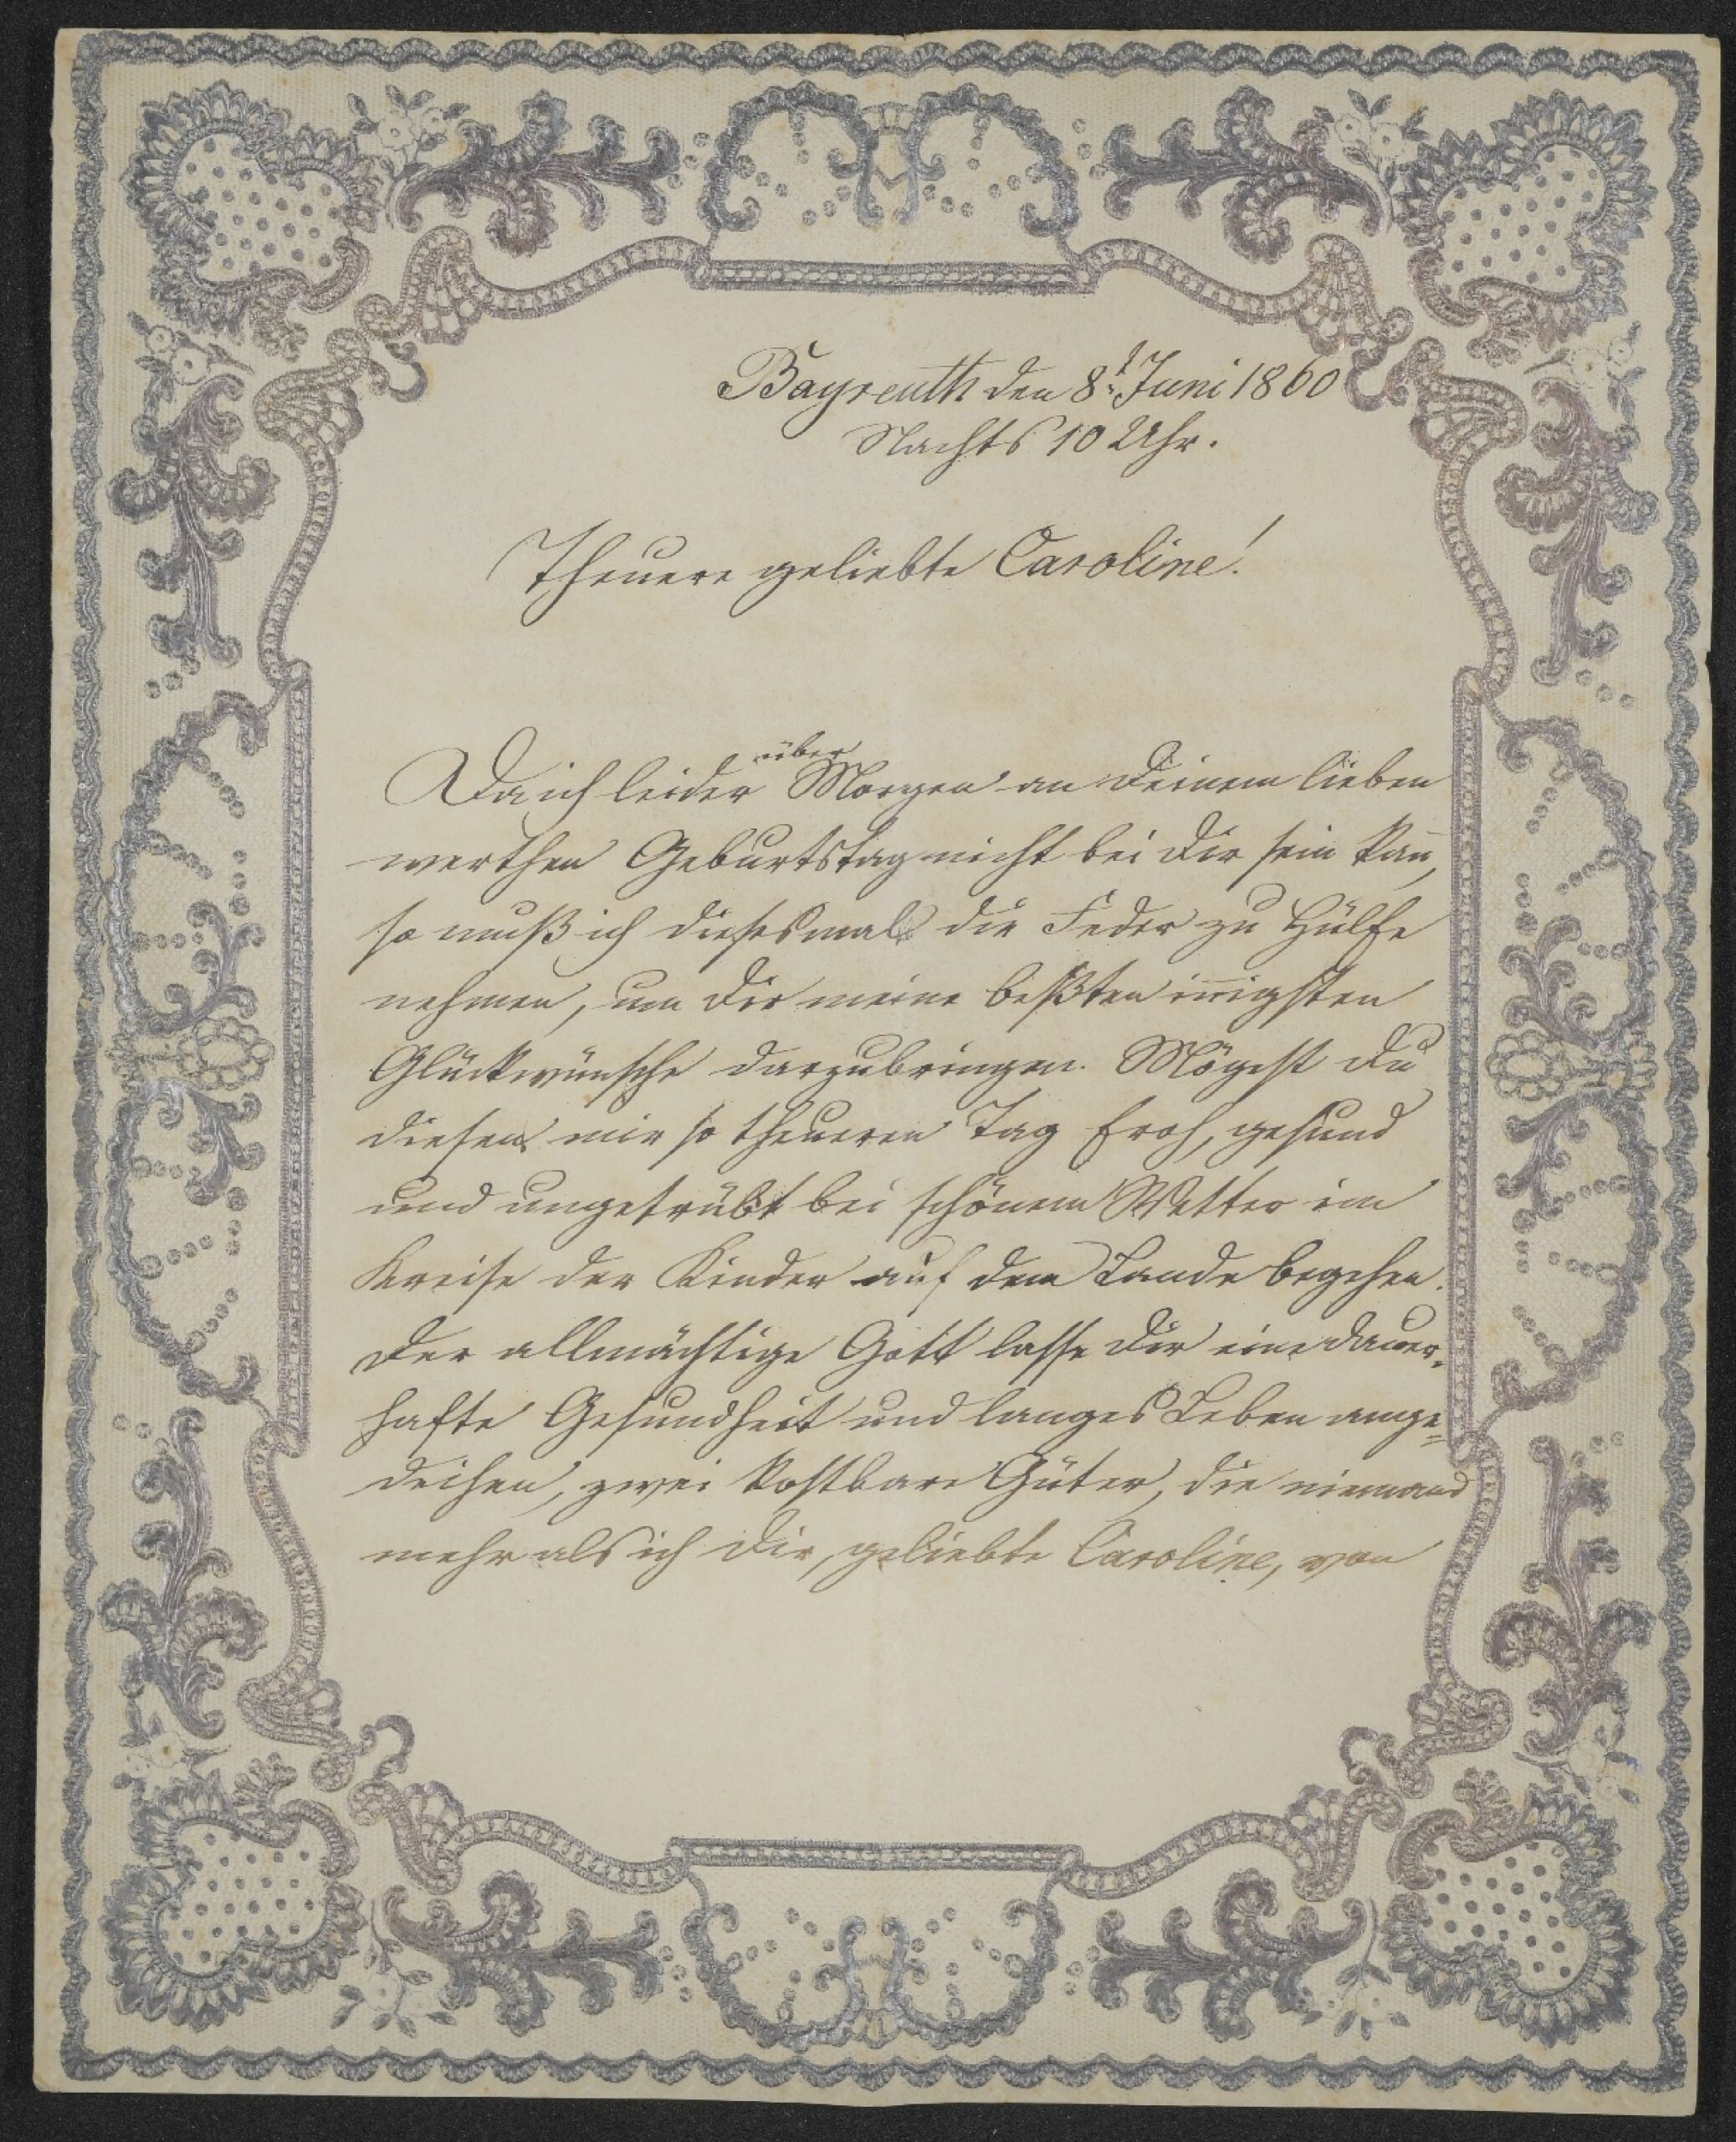 Bayreuth den 8t Juni 1860
Nachts 10 Uhr.
Theuere geliebte Caroline!
Da ich leider über Morgen an Deinem lieben
werthen Geburtstag nicht bei Dir sein kan̄,
so muß ich diesesmal die Feder zu Hülfe
nehmen, um Dir meine beßten in̄igsten
Glückwünsche darzubringen. Mögest Du
diesen mir so theueren Tag froh, gesund
und ungetrübt bei schönem Wetter im
Kreise der Kinder auf dem Lande begehen.
Der allmächtige Gott lasse Dir eine dauer-
hafte Gesundheit und langes Leben ange=
deihen, zwei kostbare Güter, die niemand
mehr als ich Dir, geliebte Caroline, von